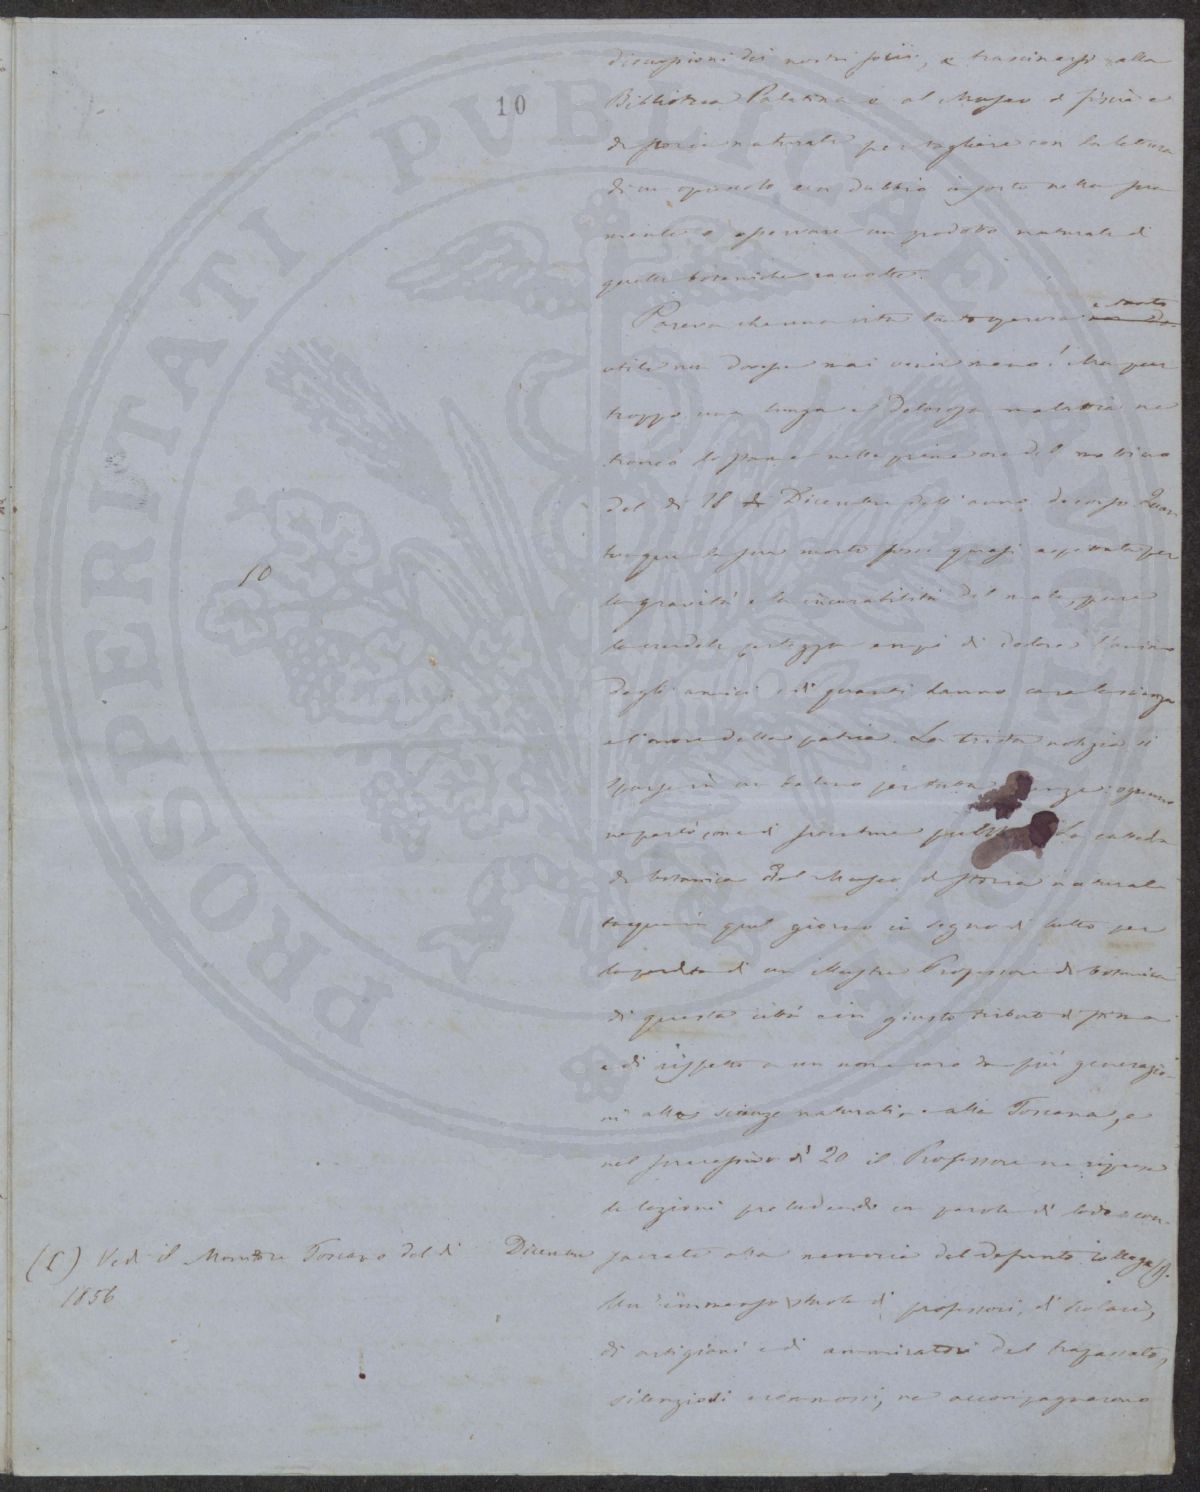 10
discussioni dei nostri socii, e trascinarsi alla
Biblioteca Palatina e al Museo di fisica e
di storia naturale per togliere con la lettura
di un opuscolo un dubbio insorto nella sua
mente o osservare un prodotto naturale di
quelle botaniche raccolte.
Pareva che una vita tanto operosa e tanto
utile non dovesse mai venir meno! Ma pur
troppo una lunga e dolorosa malattia ne
troncò lo stame nelle prime ore del mattino
del dì 18 di Dicembre dell'anno decorso. Quan
tunque la sua morte fosse quasi aspettata per
10
la gravità e la incurabilità del male, pure
la crudele certezza empì di dolore l'animo
degli amici e di quanti hanno cara la scienza
e l'onore della patria. La trista notizia si
sparse in un baleno per tutta ognuno
ne parlò come di sventura La cattedra
di botanica del Museo di storia naturale
tacque in quel giorno in segno di lutto per
la perdita di un illustre Professore di botanica
di questa città e in giusto tributo di stima
e di rispetto a un nome caro da più generazio-
ni alle scienze naturali, e alla Toscana, e
nel successivo dì 20 il Professore ne riprese
le lezioni preludendo con parole di lode con-
sacrate alla memoria del defunto collega (1).
(1) Vedi il Monitore Toscano del dì Dicembre
1856
Un immenso stuolo di professori, di scolari,
di artigiani e di ammiratori del trapassato,
silenziosi e commossi, ne accompagnarono
PROSPERITATI PUBLICAE AUGENDAE